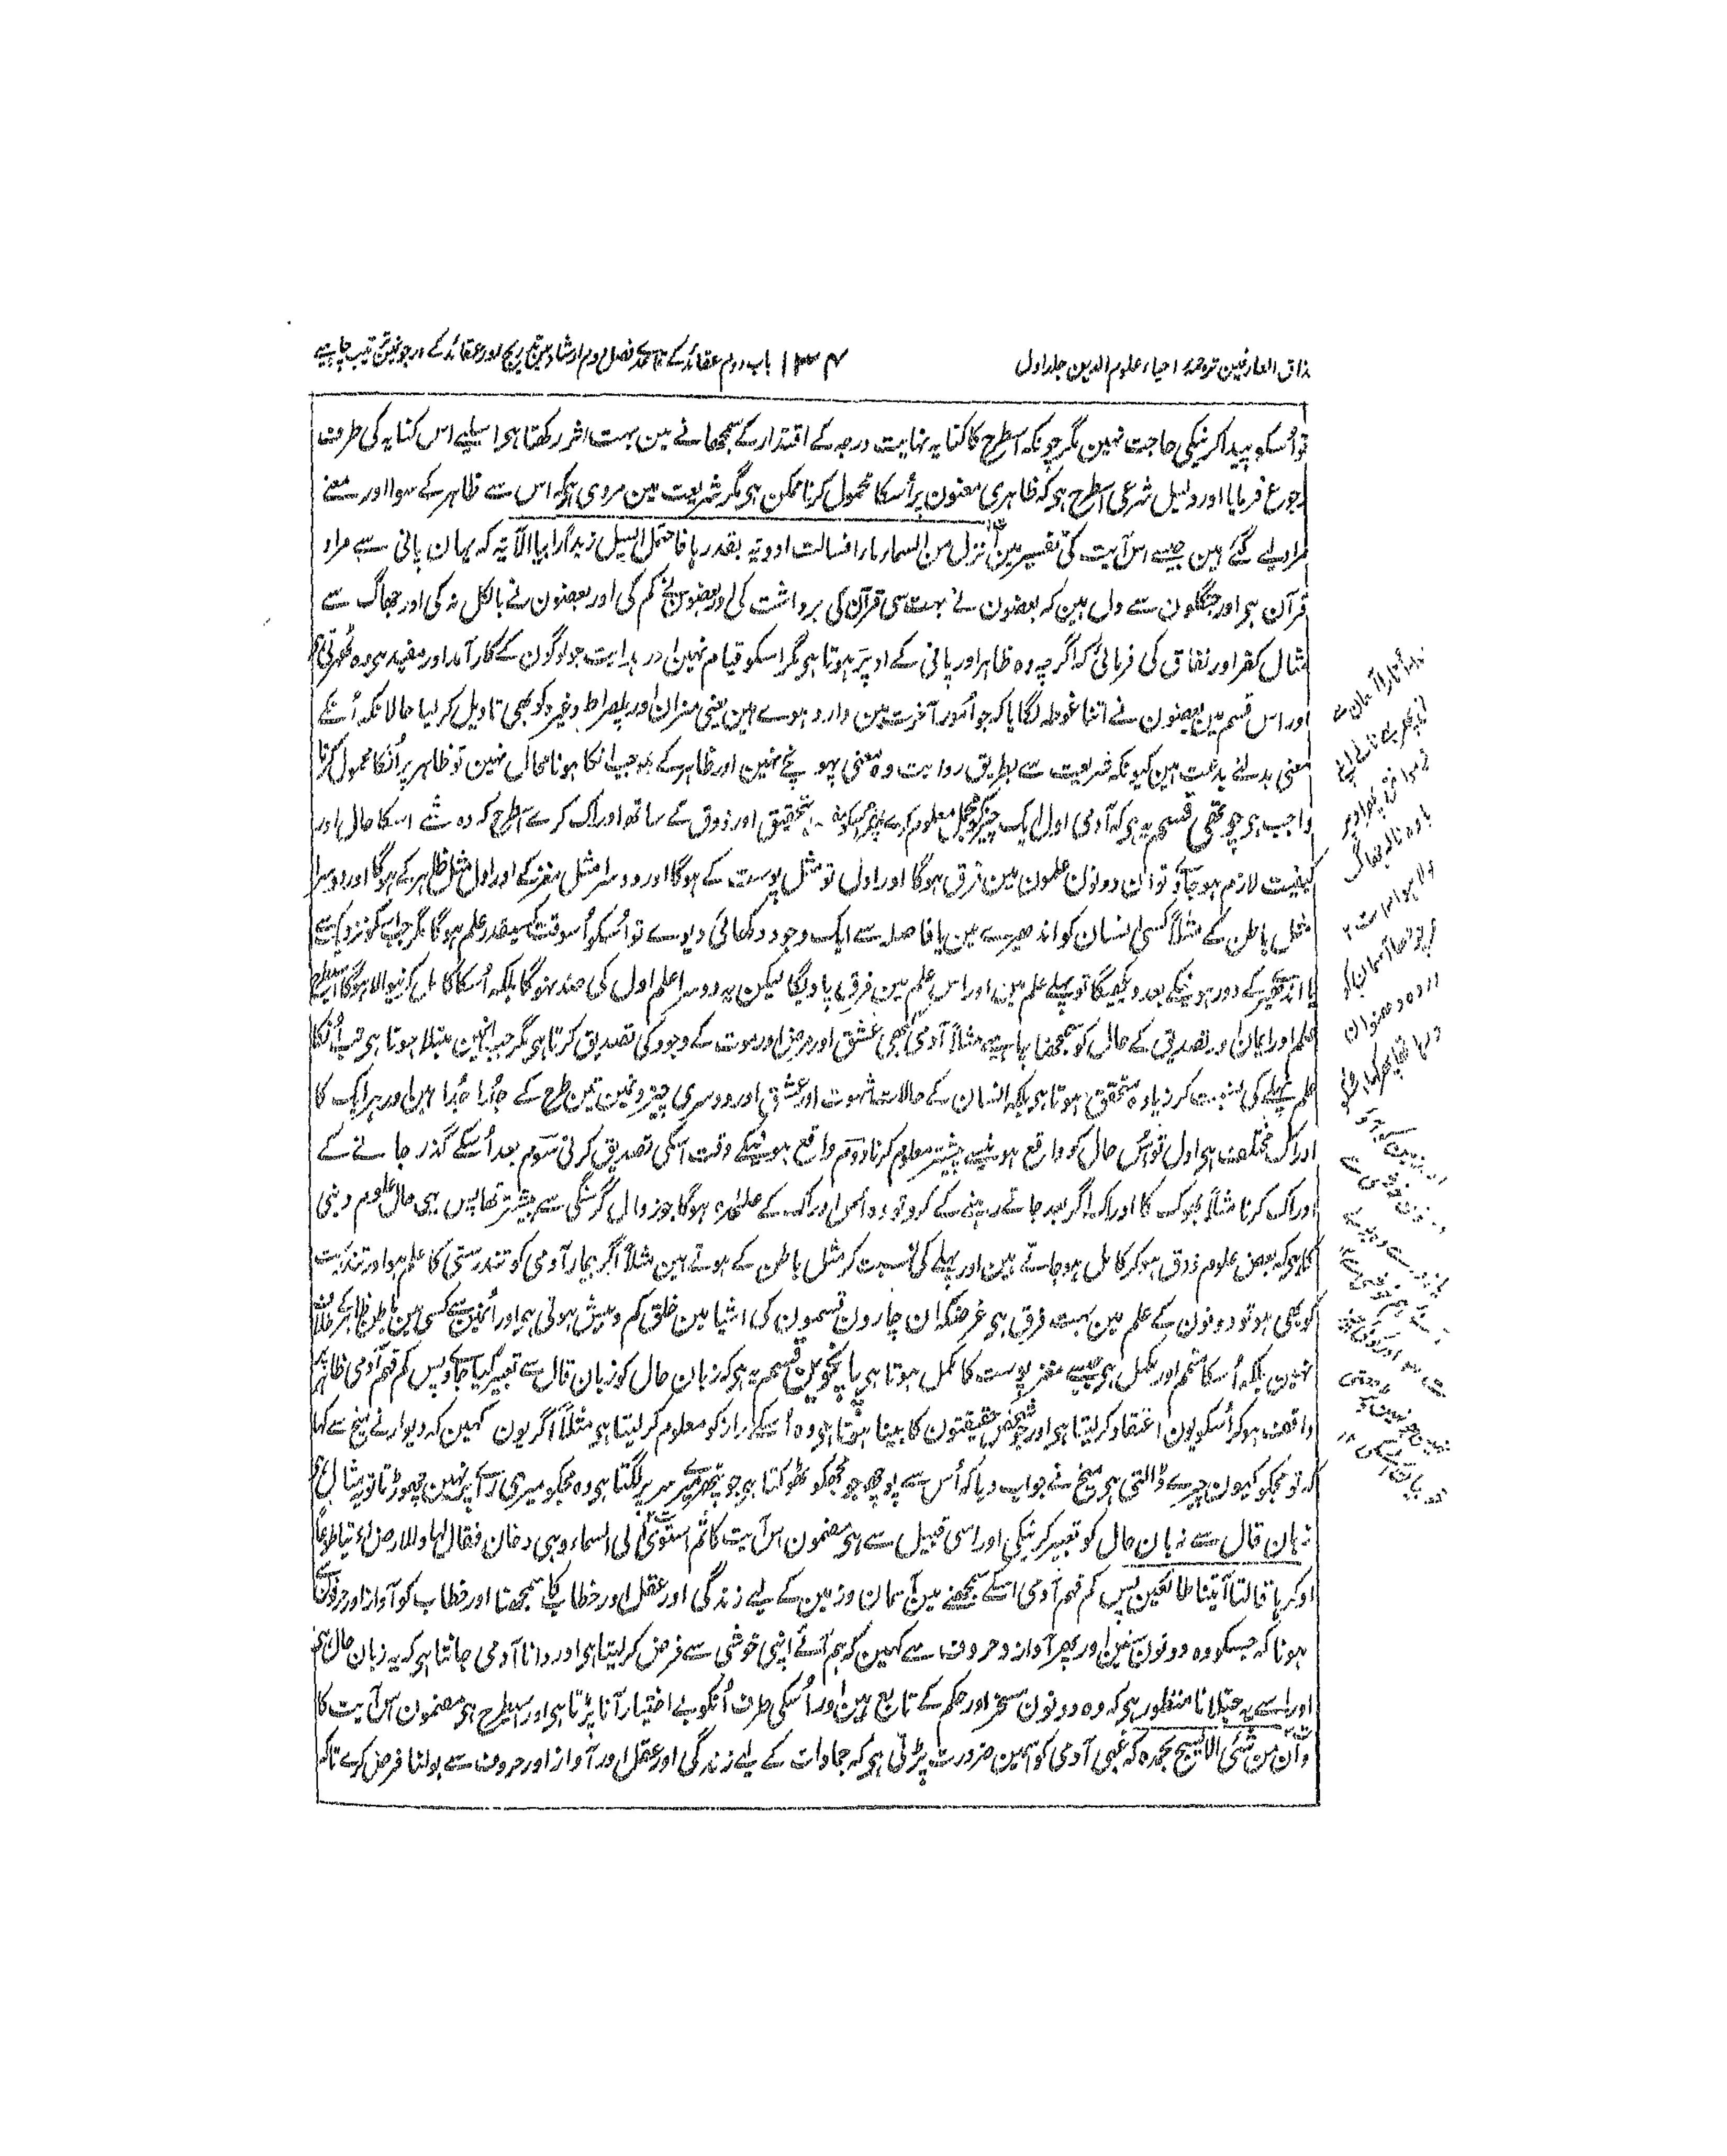 مذاق العارفین ترجمہ احیاء علوم الدین جلد اول
۱۳۴
باب دوم عقائد کے قاعدے فصل دوم ارشاد مین تدریج اور عقائد کے درجونمین ترتیب چاہیے
تو اُسکو پیدا کرنیکی حاجت نہین مگر چونکہ اسطرح کا کنایہ نہایت درجہ کے اقتدار کے سمجھانے مین بہت اثر رکھتا ہی اسلیے اس کنایہ کی طرف
رجوع فرمایا اور دلیل شرعی اسطرح ہی کہ ظاہری معنون پر اُسکا محمول کرنا ممکن ہی مگر شریعت مین مروی ہی کہ اس سے ظاہر کے سوا اور معنے
مراد لیے گئے ہین جیسے اس آیت کی تفسیر مین انزل من السماء ماء فسالت اودیۃ بقدرہا فاحتمل السیل زبدا رابیا الآیہ کہ یہان پانی سے مراد
قرآن ہی اور جنگلون سے دل ہین کہ بعضون نے بہت سی قرآن کی برداشت کی اور بعضون نے کم کی اور بعضون نے بالکل نہ کی اور جھاگ سے
مثال کفر اور نفاق کی فرمائی کہ اگرچہ وہ ظاہر اور پانی کے اوپر ہوتا ہی مگر اسکو قیام نہین اور ہدایت جو لوگون کے کار آمد اور مفید ہی وہ ٹھہرتی ہی
اور اس قسم مین بعضون نے اتنا غوطہ لگایا کہ جو اُمور آخرت مین وارد ہوے ہین یعنی میزان اور پلصراط وغیرہ کو بھی تاویل کر لیا حالانکہ اُنکے
معنی بدلنے بدعت ہین کیونکہ شریعت سے بطریق روایت وہ معنی پہونچے نہین اور ظاہر کے بموجب اُنکا ہونا محال نہین تو ظاہر پر اُنکا محمول کرنا
واجب ہی چوتھی قسم یہ ہی کہ آدمی اول ایک چیز کو مجمل معلوم کرے پھر اُسکو تحقیق اور ذوق کے ساتھ ادراک کرے اسطرح کہ وہ شے اسکا حال اور
کیفیت لازم ہو جاے تو ان دونون علمون مین فرق ہوگا اور اول تو مثل پوست کے ہوگا اور دوسرا مثل مغز کے اور اول مثل ظاہر کے ہوگا اور دوسرا
مثل باطن کے مثلاً کسی انسان کو اندھیرے مین یا فاصلہ سے ایک وجود دکھائی دیوے تو اُسکو اُسوقت کسیقدر علم ہوگا مگر جب اُسکو نزدیک سے
یا اندھیرے کے دور ہونیکے بعد دیکھیگا تو پہلے علم مین اور اس علم مین فرق پاویگا لیکن یہ دوسرا علم اول کی ضد نہوگا بلکہ اُسکا کامل کرنیوالا ہوگا اسیطرح
علم اور ایمان اور تصدیق کے حال کو سمجھنا چاہیے مثلاً آدمی کبھی عشق اور مرض اور موت کے وجود کی تصدیق کرتا ہی مگر جب انمین مبتلا ہوتا ہی تب اُنکا
علم پہلے کی نسبت کر زیادہ متحقق ہوتا ہی بلکہ انسان کے حالات شہوت اور عشق اور دوسری چیزونمین تین طرح کے جُدا جُدا ہین اور ہر ایک کا
ادراک مختلف ہی اول تو اُس حال کو واقع ہونیسے پیشتر معلوم کرنا دوم واقع ہونیکے وقت اُسکی تصدیق کرنی سوم بعد اُسکے گذر جانے کے
ادراک کرنا مثلاً بھوک کا ادراک اگر بعد جاتے رہنے کے کرو تو وہ اُس ادراک کے علٰحدہ ہوگا جو زوال گرسنگی سے پیشتر تھا پس یہی حال علوم دینی
کا ہی کہ بعض علوم ذوق ہو کر کامل ہو جاتے ہین اور پہلے کی نسبت کر مثل باطن کے ہوتے ہین مثلاً اگر بیمار آدمی کو تندرستی کا علم ہو اور تندرست
کو بھی ہو تو دونون کے علم مین بہت فرق ہی غرضکہ ان چارون قسمون کی اشیا مین خلق کم و بیش ہوتی ہی اور انمین سے کسی مین باطن ظاہر کے خلاف
نہین بلکہ اُسکا متمم اور مکمل ہی جیسے مغز پوست کا مکمل ہوتا ہی پانچوین قسم یہ ہی کہ زبان حال کو زبان قال سے تعبیر کیا جاے پس کم فہم آدمی ظاہر پر
واقف ہو کر اُسکو یون اعتقاد کر لیتا ہی اور جو شخص حقیقتون کا بینا ہوتا ہی وہ اُسکے راز کو معلوم کر لیتا ہی مثلاً اگر یون کہین کہ دیوار نے میخ سے کہا
کہ تو مجکو کیون چیرے ڈالتی ہی میخ نے جواب دیا کہ اُس سے پوچھ جو مجھکو ٹھوکتا ہی جو پتھر میرے سر پر لگتا ہی وہ مجکو میری راے پر نہین چھوڑتا تو یہ مثال ہی
زبان قال سے زبان حال کو تعبیر کرنیکی اور اسی قبیل سے ہی مضمون اس آیت کا ثم استوی الی السماء وہی دخان فقال لہا وللارض ائتیا طوعاً
او کرہا قالتا آتینا طائعین پس کم فہم آدمی اسکے سمجھنے مین آسمان و زمین کے لیے زندگی اور عقل اور خطاب کا سمجھنا اور خطاب کو آواز اور حرفون سے
ہونا کہ جسکو وہ دونون سنین اور پھر آواز و حروف سے کہین کہ ہم آئے اپنی خوشی سے فرض کر لیتا ہی اور دانا آدمی جانتا ہی کہ یہ زبان حال ہی
اور اس سے یہ جتلانا منظور ہی کہ وہ دونون مسخر اور حکم کے تابع ہین اور اُسکی طرف اُنکو بے اختیار آنا پڑتا ہی اور اسیطرح ہی مضمون اس آیت کا
وان من شئی الا یسبح بحمدہ کہ غبی آدمی کو اسمین ضرورت پڑتی ہی کہ جمادات کے لیے زندگی اور عقل اور آواز اور حروف سے بولنا فرض کرے تاکہ